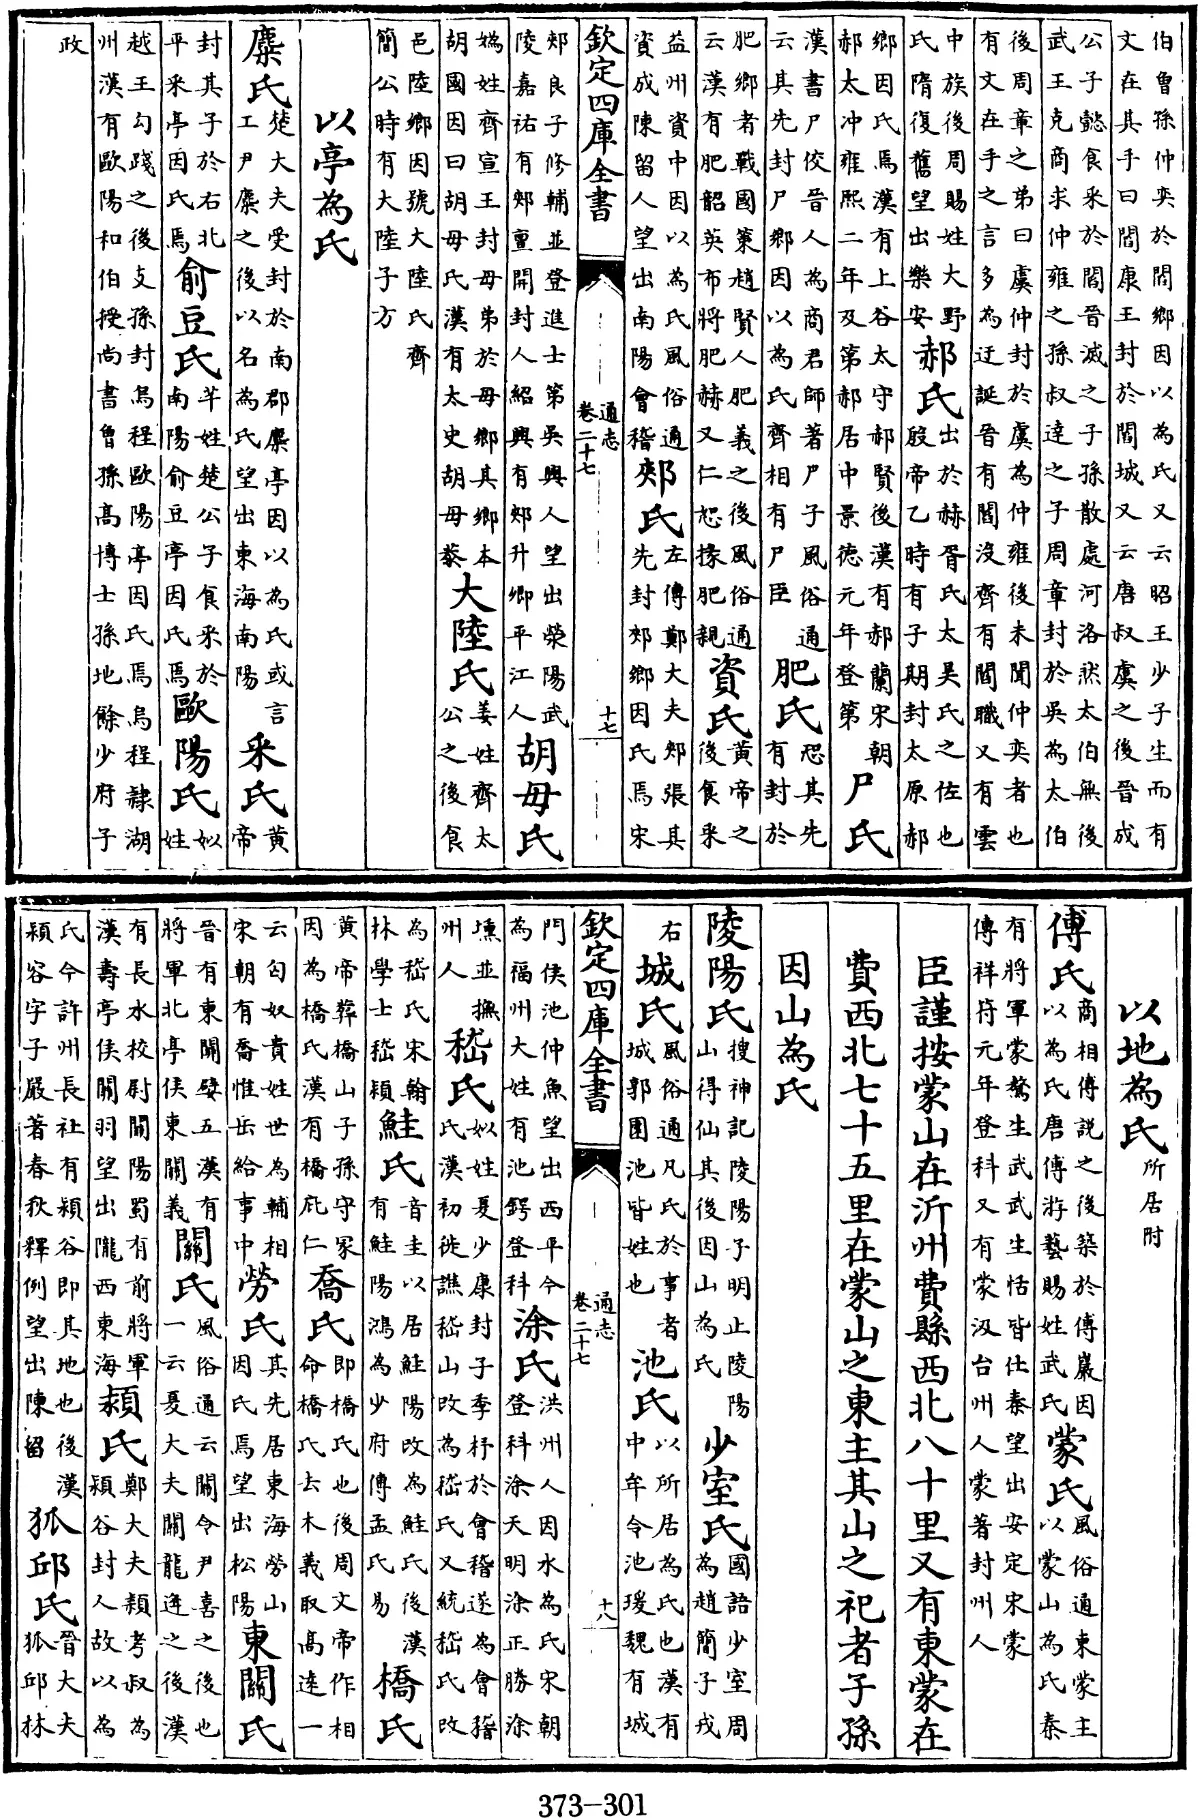 伯曾孫仲奕於閻鄉因以為氏又云昭王少子生而有
文在其手曰閻康王封於閻城又云唐叔虞之後晉成
公子懿食采於閻晉滅之子孫散處河洛然太伯無後
武王克商求仲雍之孫叔達之子周章封於吳為太伯
後周章之弟曰虞仲封於虞為仲雍後未聞仲奕者也
有文在手之言多為迂誕晉有閻沒齊有閻職又有雲
中族後周賜姓大野
氏隋復舊望出樂安
郝氏
出於赫胥氏太昊氏之佐也
殷帝乙時有子期封太原郝
鄉因氏焉漢有上谷太守郝賢後漢有郝蘭宋朝
郝太冲雍熙二年及第郝居中景德元年登第
尸氏
漢書尸佼晉人為商君師著尸子風俗通
云其先封尸鄉因以為氏齊相有尸臣
肥氏
恐其先
有封於
肥鄉者戰國策趙賢人肥義之後風俗通
云漢有肥韶英布將肥赫又仁恕掾肥親
資氏
黃帝之
後食采
益州資中因以為氏風俗通
資成陳留人望出南陽會稽
郟氏
左傳鄭大夫郟張其
先封郊鄉因氏焉宋
欽定四庫全書
通志
卷二十七
十七
郟良子修輔並登進士第吳興人望出滎陽武
陵嘉祐有郟亶開封人紹興有郟升卿平江人
胡毋氏
媯姓齊宣王封母弟於毋鄉其鄉本
胡國因曰胡毋氏漢有太史胡毋恭
大陸氏
姜姓齊太
公之後食
邑陸鄉因號大陸氏齊
簡公時有大陸子方
以亭為氏
糜氏
楚大夫受封於南郡糜亭因以為氏或言
工尹糜之後以名為氏望出東海南陽
采氏
黃
帝
封其子於右北
平采亭因氏焉
俞豆氏
芈姓楚公子食采於
南陽俞豆亭因氏焉
歐陽氏
姒
姓
越王勾踐之後支孫封烏程歐陽亭因氏焉烏程隸湖
州漢有歐陽和伯授尚書曾孫高博士孫地餘少府子
政
以地為氏
所居附
傅氏
商相傅説之後築於傅巖因
以為氏唐傅游藝賜姓武氏
蒙氏
風俗通東蒙主
以蒙山為氏秦
有將軍蒙驁生武武生恬皆仕秦望出安定宋蒙
傅祥符元年登科又有蒙汲台州人蒙著封州人
臣謹按蒙山在沂州費縣西北八十里又有東蒙在
費西北七十五里在蒙山之東主其山之祀者子孫
因山為氏
陵陽氏
搜神記陵陽子明止陵陽
山得仙其後因山為氏
少室氏
國語少室周
為趙簡子戎
右
城氏
風俗通凡氏於事者
城郭園池皆姓也
池氏
以所居為氏也漢有
中牟令池瑗魏有城
欽定四庫全書
通志
卷二十七
十八
門侯池仲魚望出西平今
為福州大姓有池鍔登科
涂氏
洪州人因水為氏宋朝
登科涂天明涂正勝涂
㙷並撫
州人
嵇氏
姒姓夏少康封子季杼於會稽遂為會稽
氏漢初徙譙嵇山改為嵇氏又統嵇氏改
為嵇氏宋翰
林學士嵇穎
鮭氏
音圭以居鮭陽改為鮭氏後漢
有鮭陽鴻為少府傳孟氏易
橋氏
黃帝葬橋山子孫守冢
因為橋氏漢有橋庇仁
喬氏
即橋氏也後周文帝作相
命橋氏去木義取高遠一
云匈奴貴姓世為輔相
宋朝有喬惟岳給事中
勞氏
其先居東海勞山
因氏焉望出松陽
東關氏
晉有東關嬖五漢有
將軍北亭侯東關義
關氏
風俗通云關令尹喜之後也
一云夏大夫關龍逄之後漢
有長水校尉關陽蜀有前將軍
漢壽亭侯關羽望出隴西東海
潁氏
鄭大夫潁考叔為
潁谷封人故以為
氏今許州長社有潁谷即其地也後漢
潁容字子嚴著春秋釋例望出陳留
狐邱氏
晉大夫
狐邱林
373-301